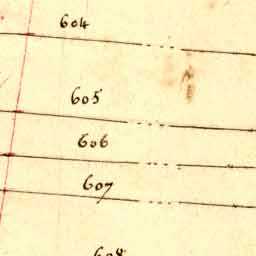 604
605
606
607
608